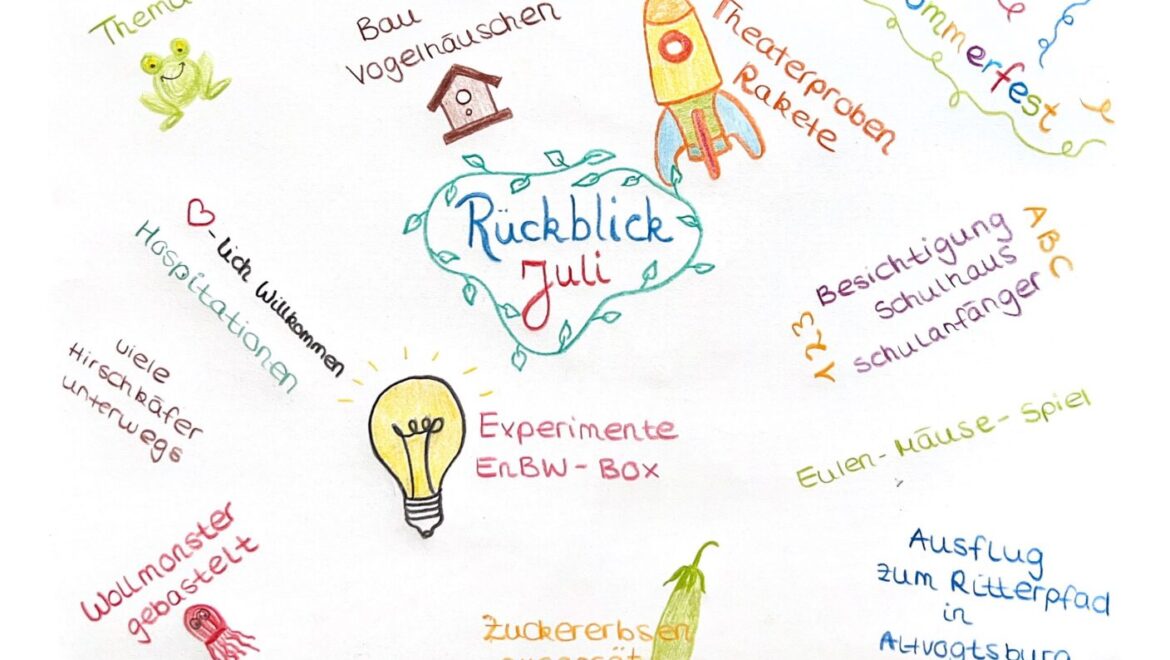 Thema
Bau
Vogelhäuschen
Theaterproben
Rakete
ommerfest
Rückblick
Juli
♡-lich Willkommen
Hospitationen
ABC
Besichtigung
Schulhaus
Schulanfänger
viele
Hirschkäfer
unterwegs
Experimente
EnBW-Box
Eulen-Mäuse-Spiel
Wollmonster
gebastelt
Zuckererbsen
Ausflug
zum Ritterpfad
in
Altvogtsburg